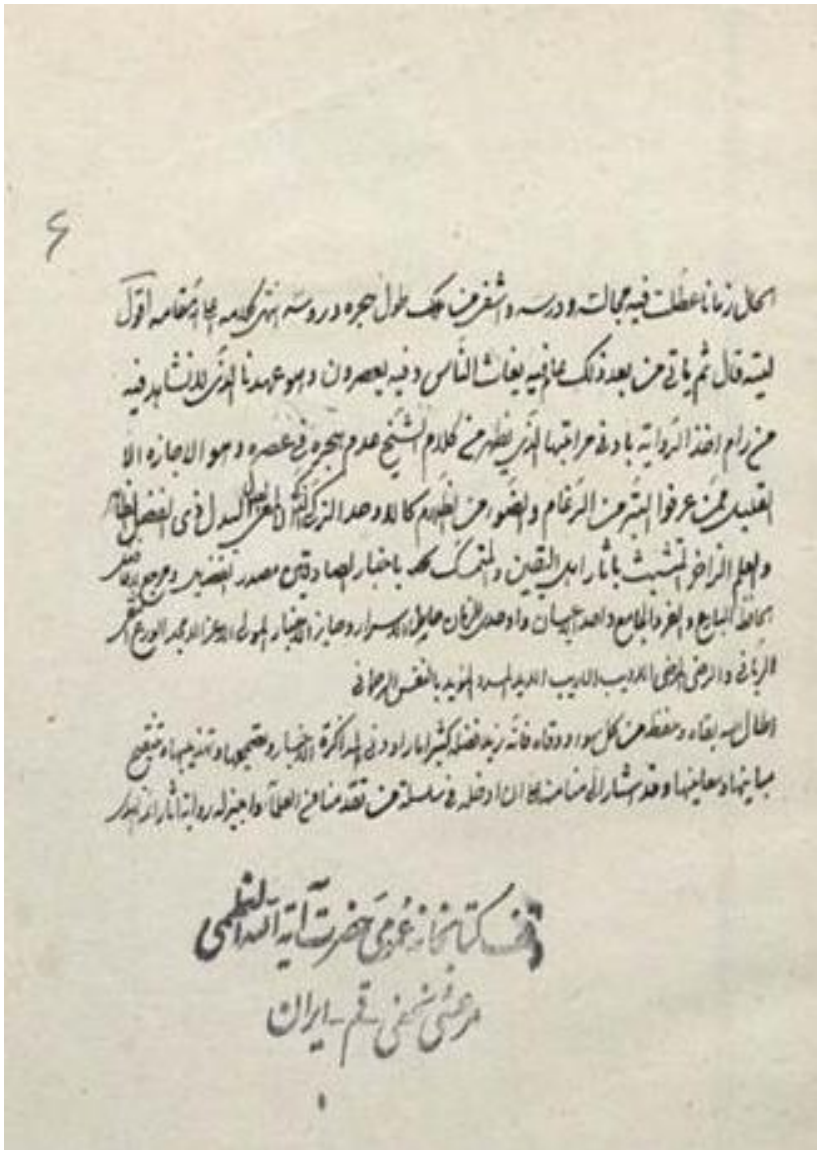 ۶
الحال زمانا عطلت فيه مجالسته ودرسه واشفى من طول هجره دروسه انتهى كلامه اقول
ليته قال ثم ياتي من بعد ذلك عام فيه يغاث الناس وفيه يعصرون وهو عهدنا الذي لا نشاهد فيه
من رام اخذ الرواية بادنى مراتبها الذي يظهر من كلام الشيخ عدم هجره في عصره وهو الاجازه الا
القليل ممن عرفوا التبر من الرغام والضوء من الظلام كالاوحد الزكي البدل ذي الفضل
والعلم الزاخر المتشبث باثار اهل اليقين والمتمسك باخبار الصادقين مصدر
الحافظ البارع والفرد الجامع واحد الاعيان واوحدي الزمان الاسرار وحايز الاخبار المولى الورع
الرباني والرضي المرضي الاديب المؤيد بالنفس الرحماني
اطال الله بقاه وحفظه من كل سوء ووقاه فانه زيد فضله كثيرا ما راودني المذاكرة الاخبار وتصحيحها وتهذيبها وتنقيح
مبانيها ومعانيها وقد اشار الي ان ادخله في سلسلة من تقدمنا من العلماء واجيز له رواية اثار
وقف كتابخانه عمومی حضرت آية الله العظمی
مرعشی نجفی - قم - ایران